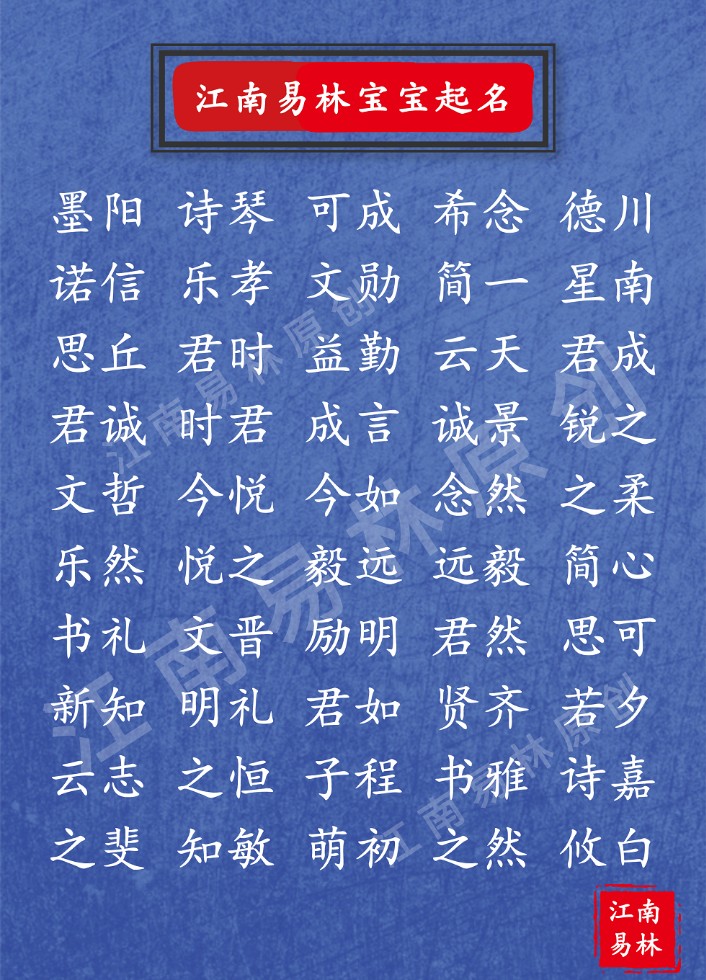 江南易林宝宝起名
墨阳 诗琴 可成 希念 德川
诺信 乐孝 文勋 简一 星南
思丘 君时 益勤 云天 君成
君诚 时君 成言 诚景 锐之
文哲 今悦 今如 念然 之柔
乐然 悦之 毅远 远毅 简心
书礼 文晋 励明 君然 思可
新知 明礼 君如 贤齐 若夕
云志 之恒 子程 书雅 诗嘉
之斐 知敏 萌初 之然 攸白
江南易林原创
江南易林原创
江南易林原创
江南
易林